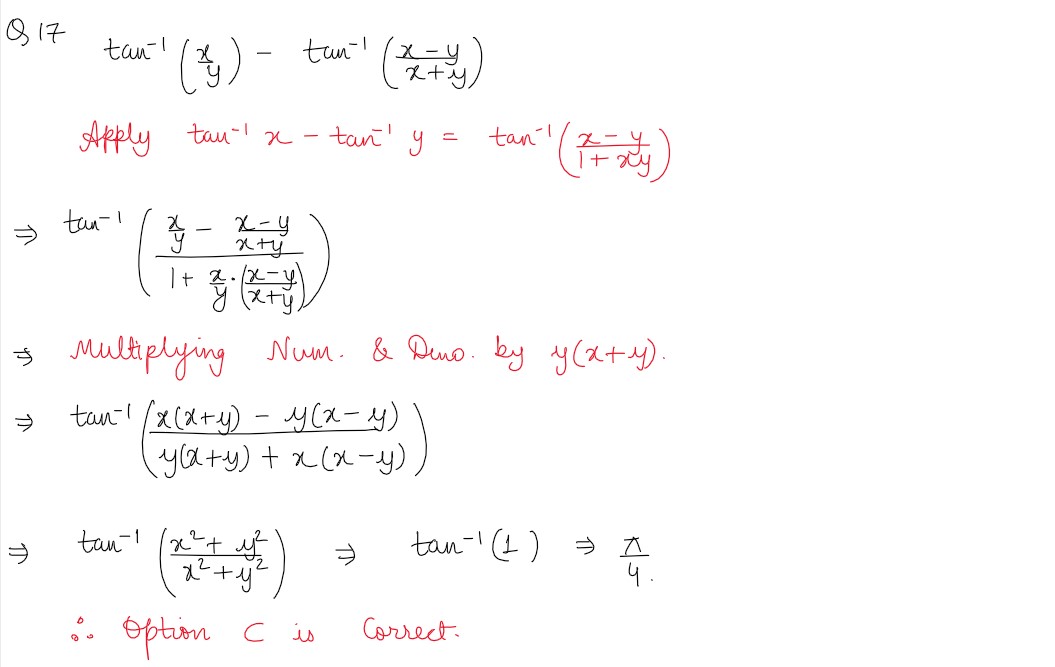 Q 17 tan⁻¹ (x/y) − tan⁻¹ ((x−y)/(x+y))
Apply tan⁻¹ x − tan⁻¹ y = tan⁻¹ ((x−y)/(1+xy))
⇒ tan⁻¹ ((x/y − (x−y)/(x+y))/(1+ x/y·((x−y)/(x+y))))
⇒ Multiplying Num. & Deno. by y(x+y).
⇒ tan⁻¹ ((x(x+y) − y(x−y))/(y(x+y) + x(x−y)))
⇒ tan⁻¹ ((x²+y²)/(x²+y²)) ⇒ tan⁻¹(1) ⇒ π/4.
∴ Option C is Correct.